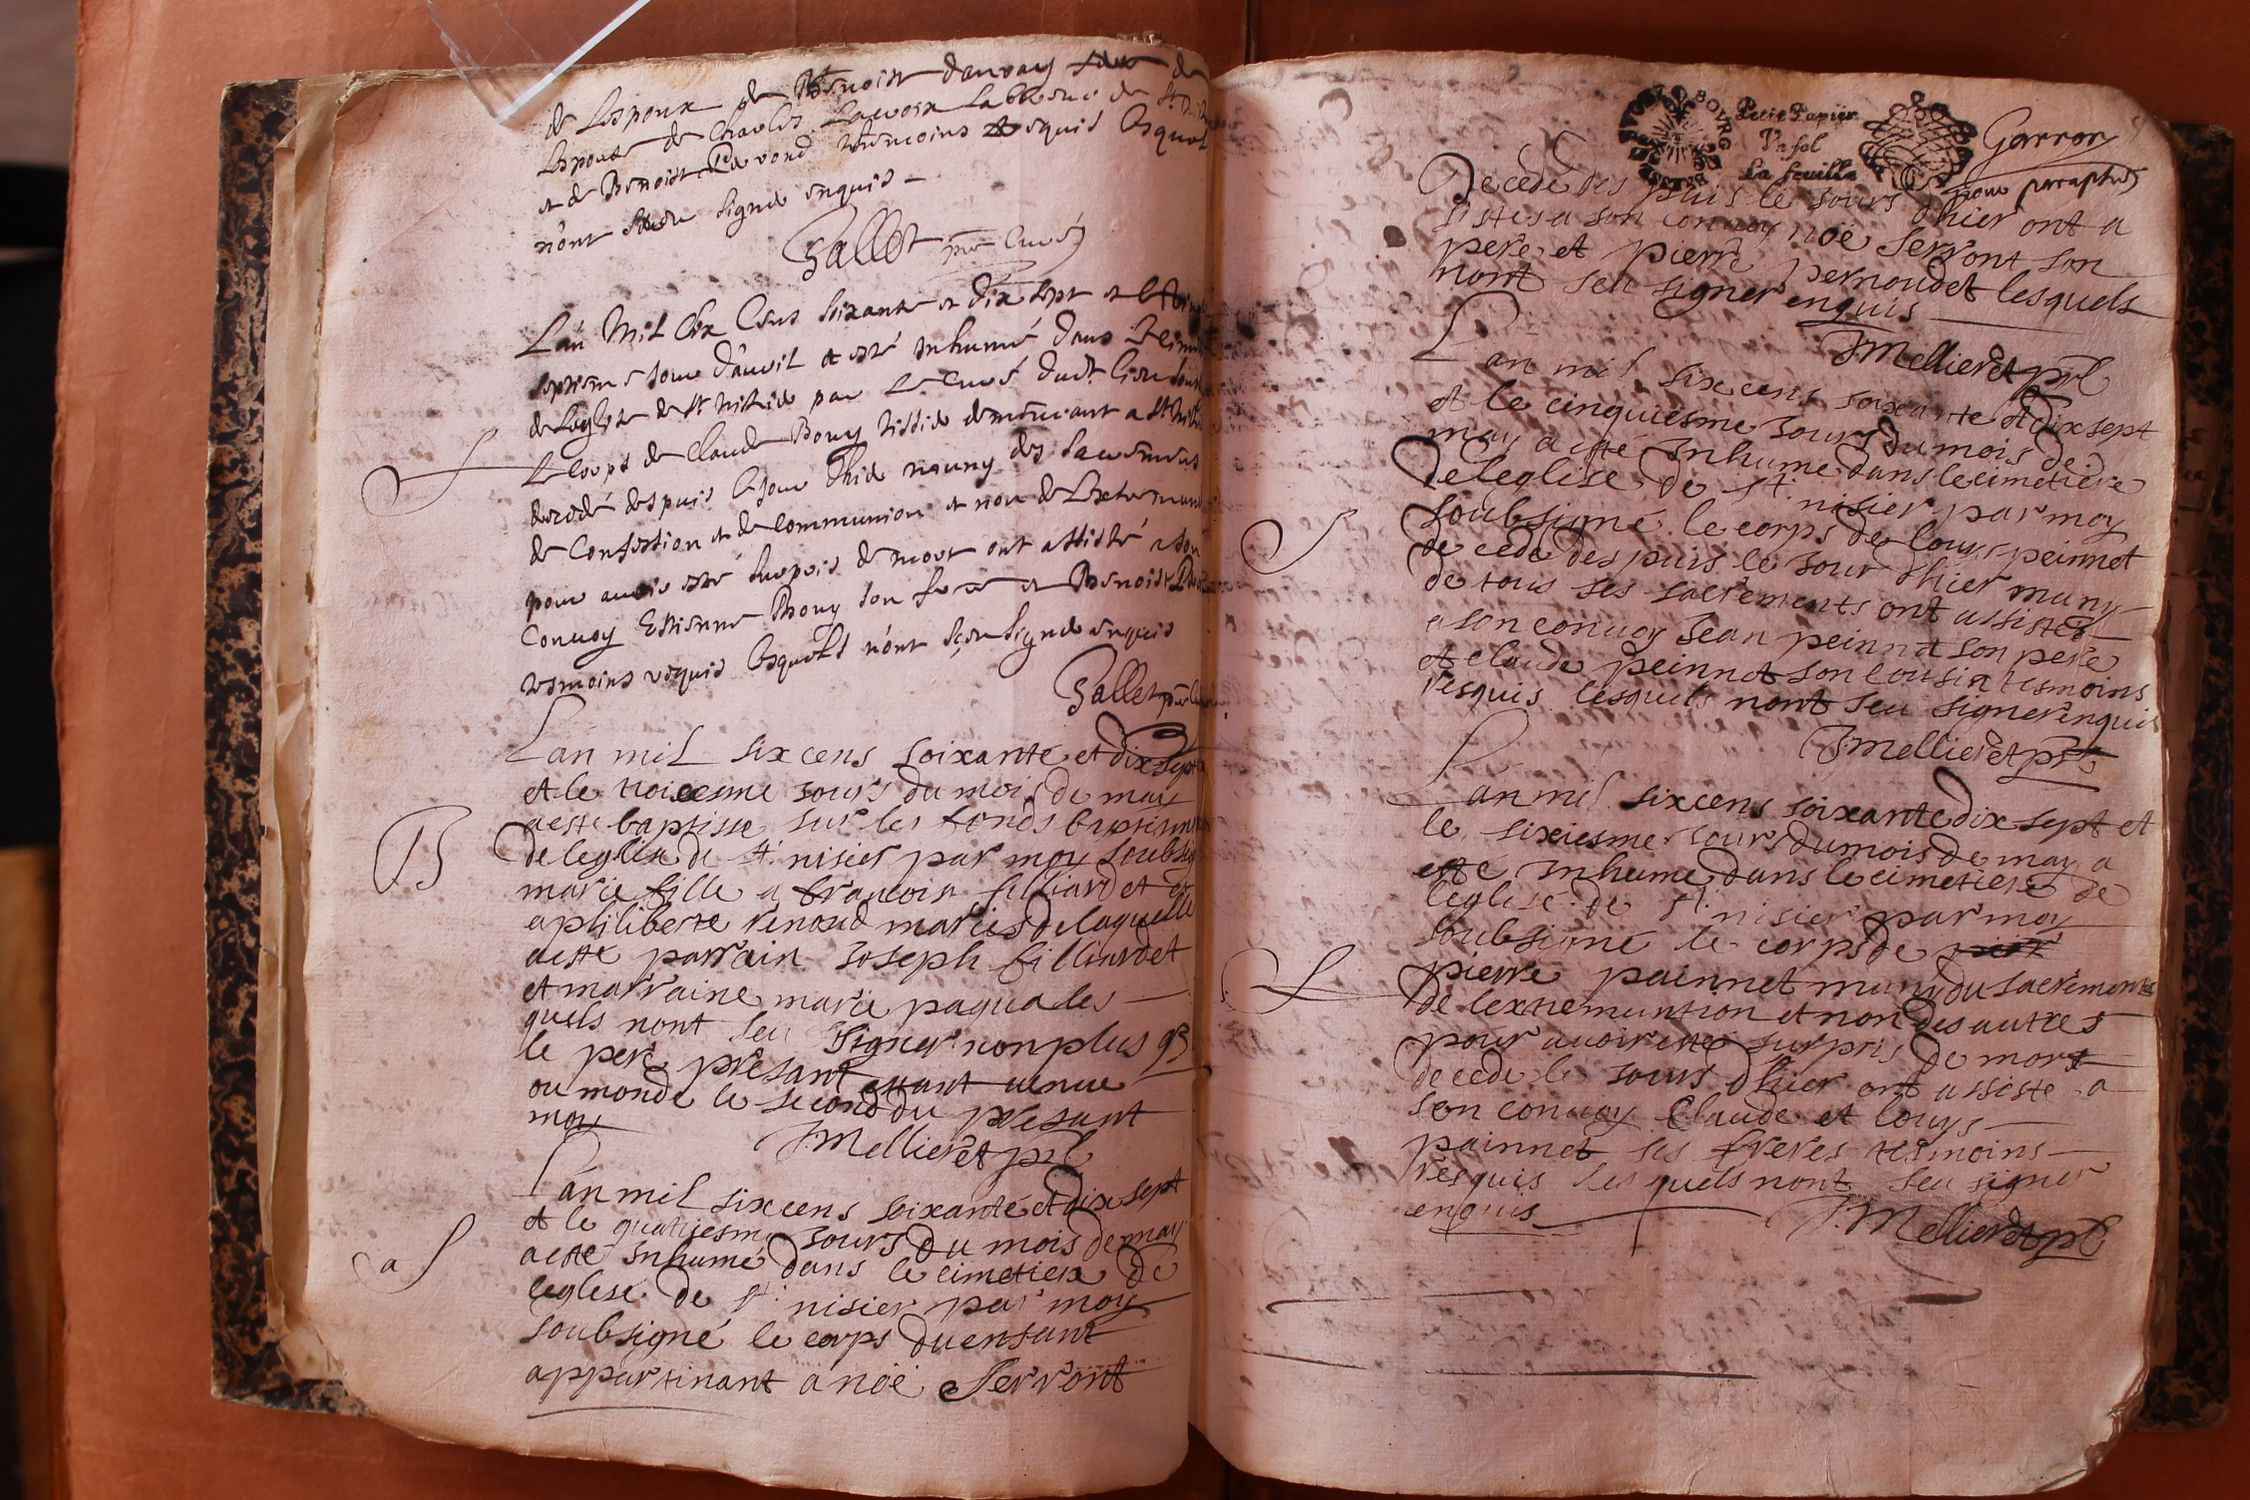 de Lespoux de Benoist dauvay de
Lespouse de Charles Lacroix Laboureur de St
et de Benoist tesmoins requis lesquels
n'ont sceu signer enquis
Gallet pbr Curé
L'an Mil Six Cens Soixante et dix sept et le
septiesme jour d'avril a esté inhumé dans le
de Leglise de St Nisier par Le Curé dudt lieu
Le Corps de Claude Bouy demeurant a St
decedé despuis le jour d'hier muny des Sacremens
de Confession et de Communion et non de Lextremunction
pour avoir esté surpris de mort ont assisté a son
Convoy Estienne Bouy son frere et Benoist
tesmoins requis lesquels n'ont sçeu signer enquis
Gallet pbr
Lan mil six cens soixante et dix sept
et le troiziesme jours du mois de may
a esté baptisse sur les fonds baptismaux
de leglise de st nisier par moy soubsig
marie fille a francois filliardet et
a philiberte renoud maries de laquelle
a esté parrain joseph filliardet
et marraine marie paqua les
quels nont seu signer non plus q3
le pere présant estant venue
ou monde le second du présant
may
J Mellieret pbr
Lan mil six cens soixante et dix sept
et le quatriesme jours du mois de may
a esté inhumé dans le cimetiere de
leglise de st nisier par moy
soubsigné le corps du ensant
appartinant a nöé serront
BOURG
Petit Papier
Vn sol
La feuille
Garron
pour paraphes
Decedé des puis le jours dhier ont a
sistés a son convoy noé serront son
pere et pierre pernoudet lesquels
nont seu signer enquis
J Mellieret pbr
Lan mil six cens soixante et dix sept
et le cinquiesme jours du mois de
may a esté inhume dans le cimetiere
de leglise de st nisier par moy
soubsigné le corps de louys peinnet
de cede des puis le jour dhier muny
de tous ses sacrements ont assistés
a son convoy jean peinnet son pere
et claude peinnet son cousin tesmoins
resquis lesquels nont seu signer enquis
J Mellieret pbr
Lan mil six cens soixante dix sept et
le sixiesme jours du mois de may a
esté inhume dans le cimetiere de
leglise de st nisier par moy
soubsigné le corps de
pierre painnet muny du sacrements
de lextremuntion et non des autres
pour avoir esté surpris de mort
decede le jours dhier ont assiste a
son convoy Claude et louys
painnet ses freres tesmoins
résquis les quels nont seu signer
enquis
J. Mellieret pbr